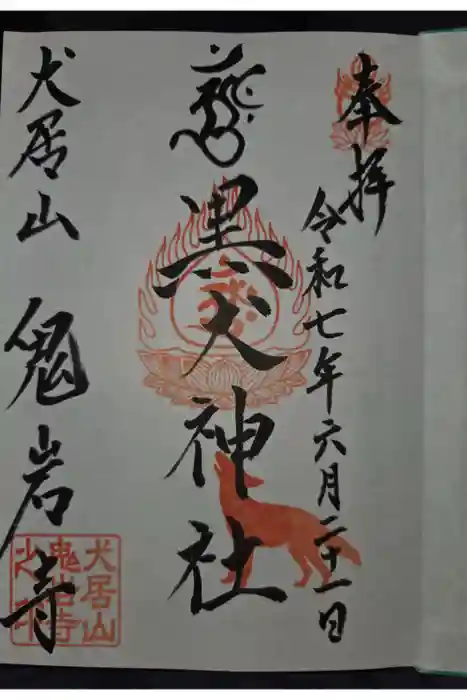 奉拝
令和七年六月二十一日
黒犬神社
犬居山 鬼岩寺
犬居山
鬼岩寺